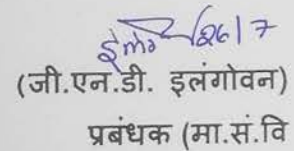 26/7
(जी.एन.डी. इलंगोवन)
प्रबंधक (मा.सं.वि